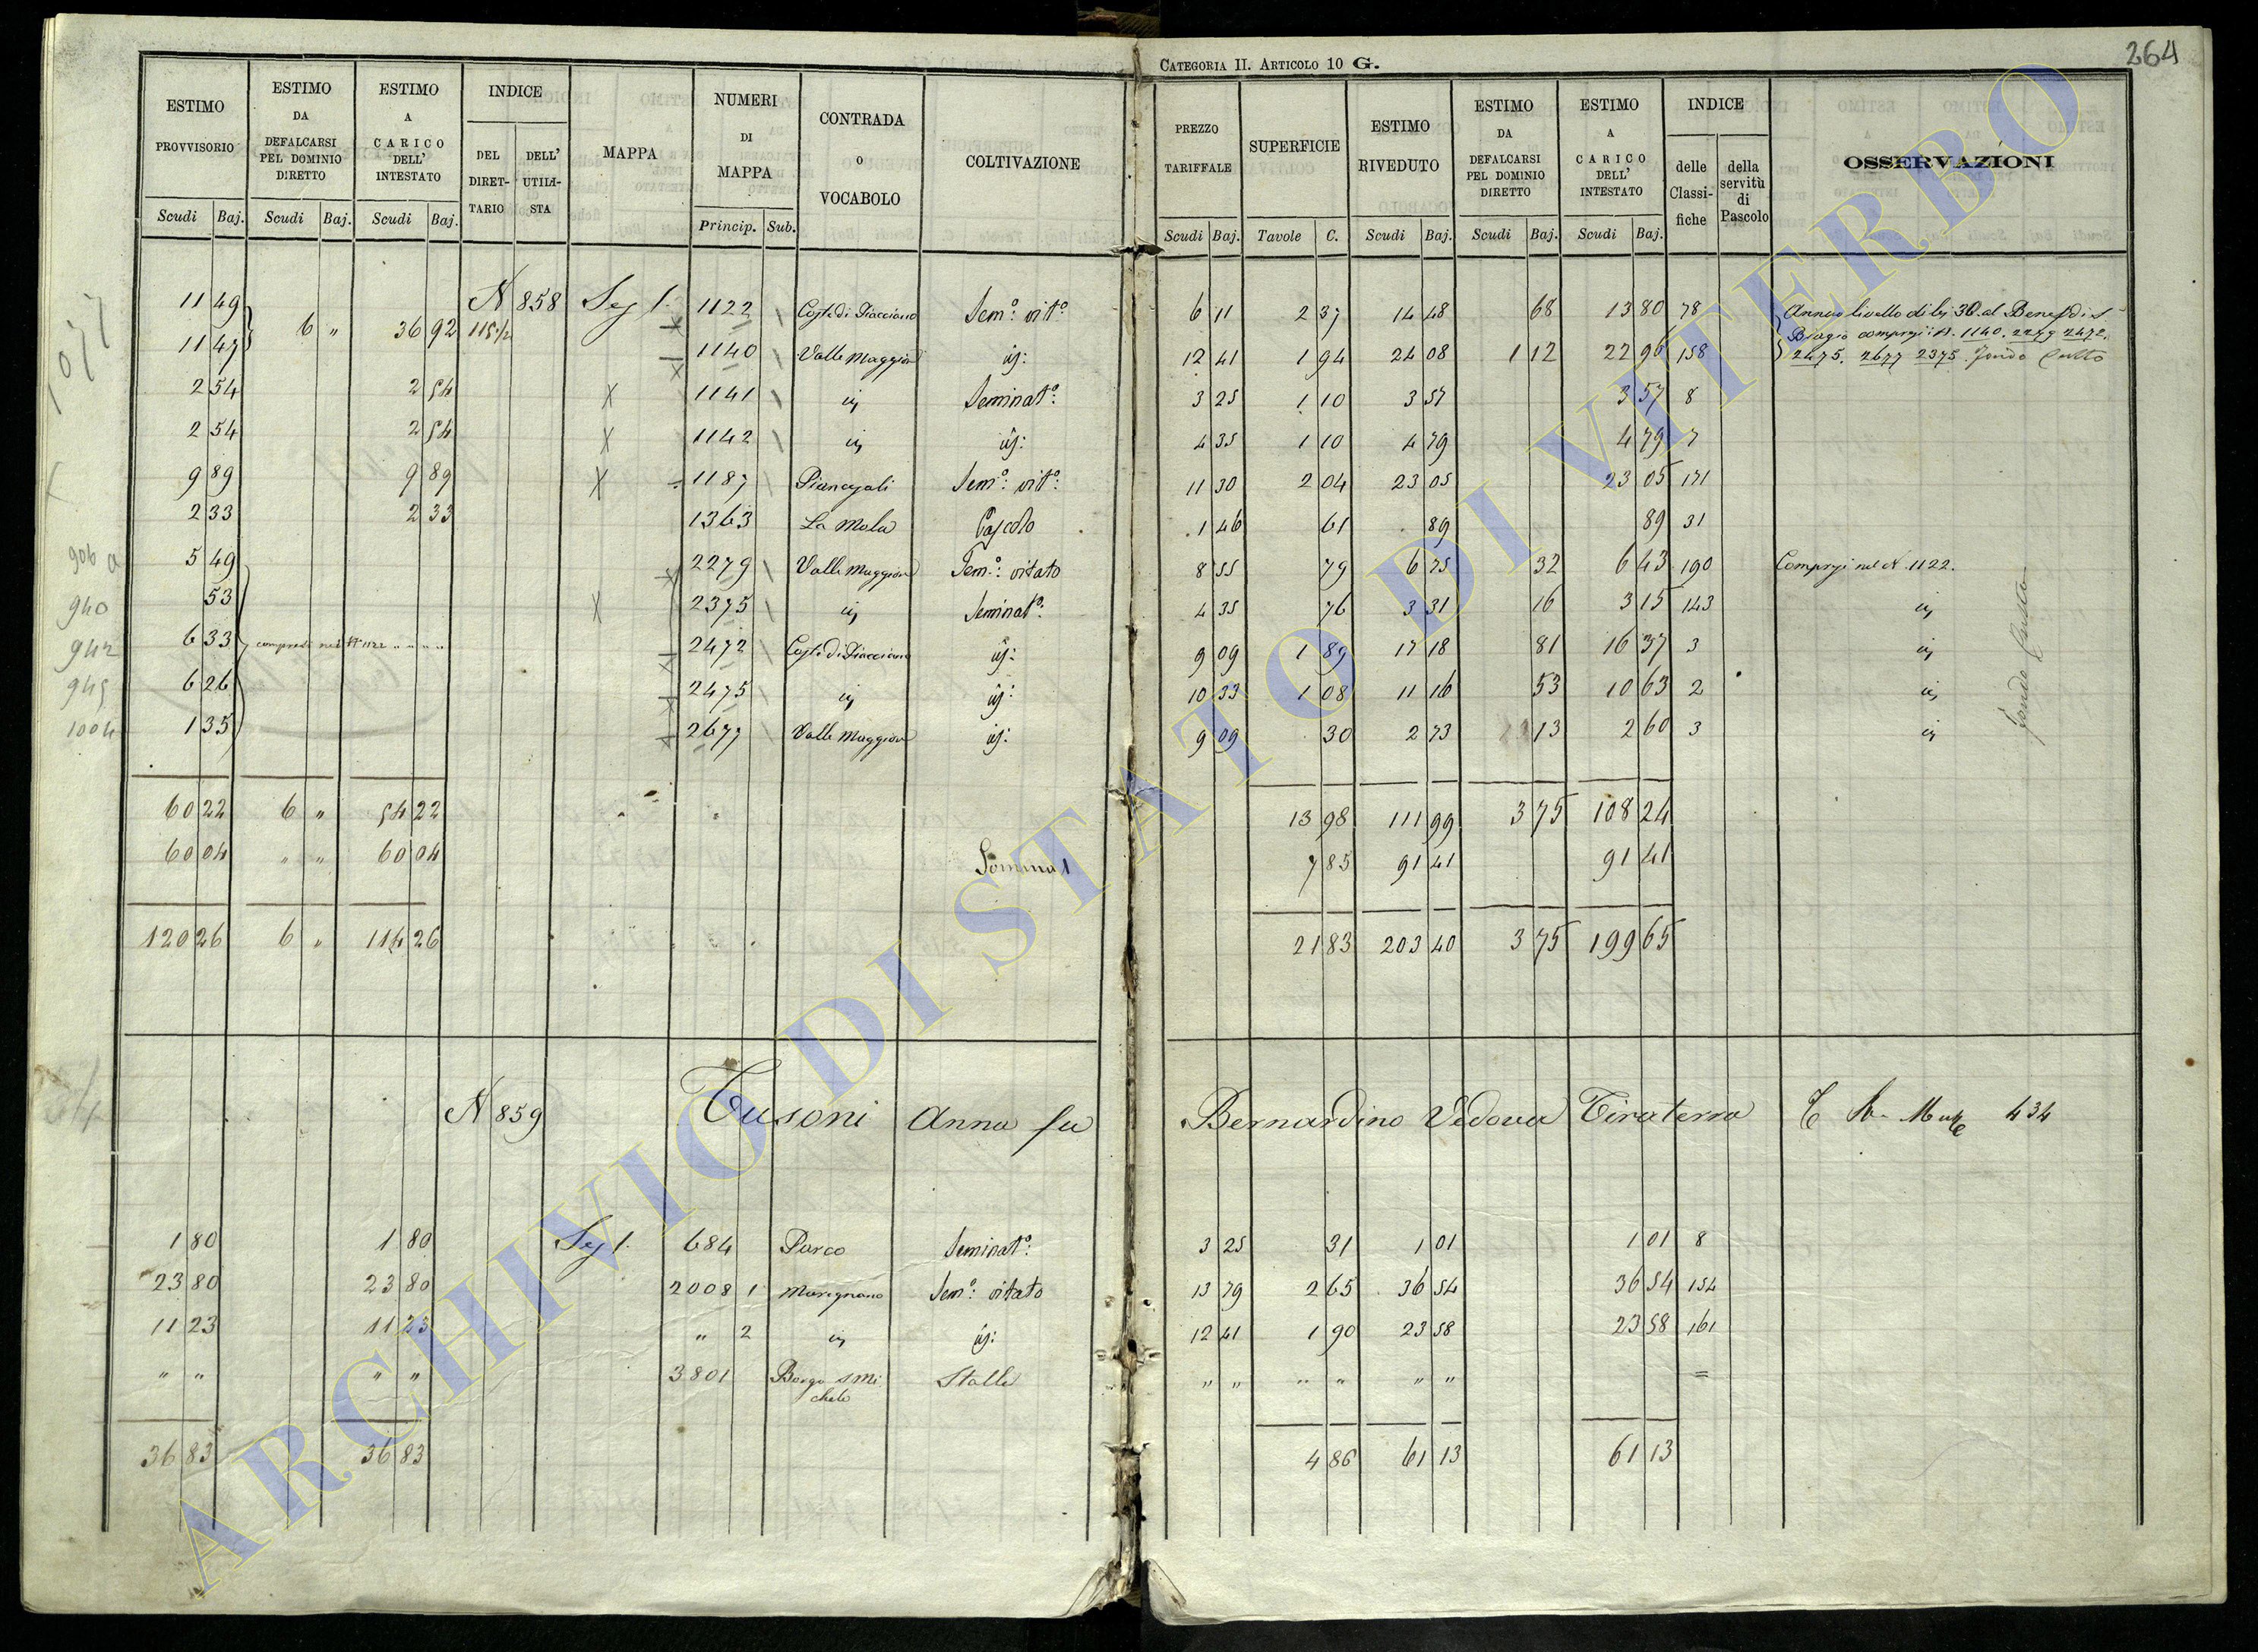 264
CATEGORIA II. ARTICOLO 10 G.
ESTIMO PROVVISORIO Scudi Baj. ESTIMO DA DEFALCARSI PEL DOMINIO DIRETTO Scudi Baj. ESTIMO A CARICO DELL' INTESTATO Scudi Baj. INDICE DEL DIRETTARIO DELL' UTILISTA MAPPA NUMERI DI MAPPA Princip. Sub. CONTRADA O VOCABOLO COLTIVAZIONE
PREZZO TARIFFALE Scudi Baj. SUPERFICIE Tavole C. ESTIMO RIVEDUTO Scudi Baj. ESTIMO DA DEFALCARSI PEL DOMINIO DIRETTO Scudi Baj. ESTIMO A CARICO DELL' INTESTATO Scudi Baj. INDICE delle Classifiche della servitù di Pascolo OSSERVAZIONI
11 49 6 " 36 92 N 858 1122 Sem.o vit.o 6 11 2 37 14 48 68 13 80 78 Annuo livello di 30 al
11 47 1140 Valle Maggiore 12 41 1 94 24 08 1 12 22 96 158 Biagio 1140. 2279 2472.
2475. 2677 2375. fondo
2 54 2 54 X 1141 Seminat.o 3 25 1 10 3 57 3 57 8
2 54 2 54 X 1142 4 35 1 10 4 79 4 79 7
9 89 9 89 X 1187 Sem.o vit.o 11 30 2 04 23 05 23 05 171
2 33 2 33 1363 La Mola Pascolo 1 46 61 89 89 31
906 5 49 2279 Valle Maggiore Sem.o vitato 8 55 79 6 75 32 6 43 190 nel N. 1122.
940 53 X 2375 Seminat.o 4 35 76 3 31 16 3 15 143
942 6 33 compresi nel N 1122 2472 9 09 1 89 17 18 81 16 37 3
945 6 26 2475 10 33 1 08 11 16 53 10 63 2
1004 1 35 2677 Valle Maggiore 9 09 30 2 73 13 2 60 3
60 22 6 " 54 22 13 98 111 99 3 75 108 24
60 04 " " 60 04 Somma 7 85 91 41 91 41
120 26 6 " 114 26 21 83 203 40 3 75 199 65
N 859 Tusoni Anna fu Bernardino Vedova Tiraterra 434
1 80 1 80 684 Parco Seminat.o 3 25 31 1 01 1 01 8
23 80 23 80 2008 1 Marignano Sem.o vitato 13 79 2 65 36 54 36 54 154
11 23 11 23 " 2 12 41 1 90 23 58 23 58 161
" " " " 3801 Borgo S Michele Stalle " " " " " " =
36 83 36 83 4 86 61 13 61 13
ARCHIVIO DI STATO DI VITERBO